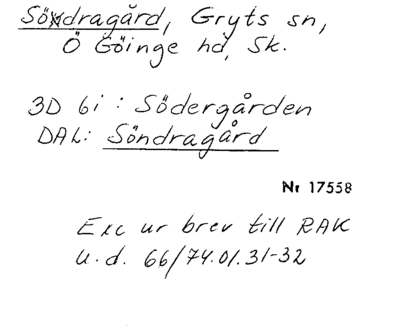 Söndragård, Gryts sn,
Ö Göinge hd, Sk.
3D 6i : Södergården
DAL: Söndragård
Nr 17558
Exc ur brev till RAK
u.d. 66/74.01.31-32